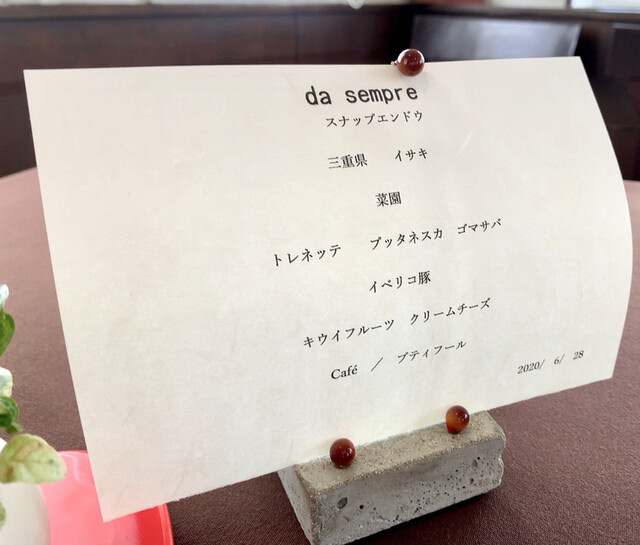 da sempre
スナップエンドウ
三重県 イサキ
菜園
トレネッテ プッタネスカ ゴマサバ
イベリコ豚
キウイフルーツ クリームチーズ
Café ／ プティフール
2020/ 6/ 28